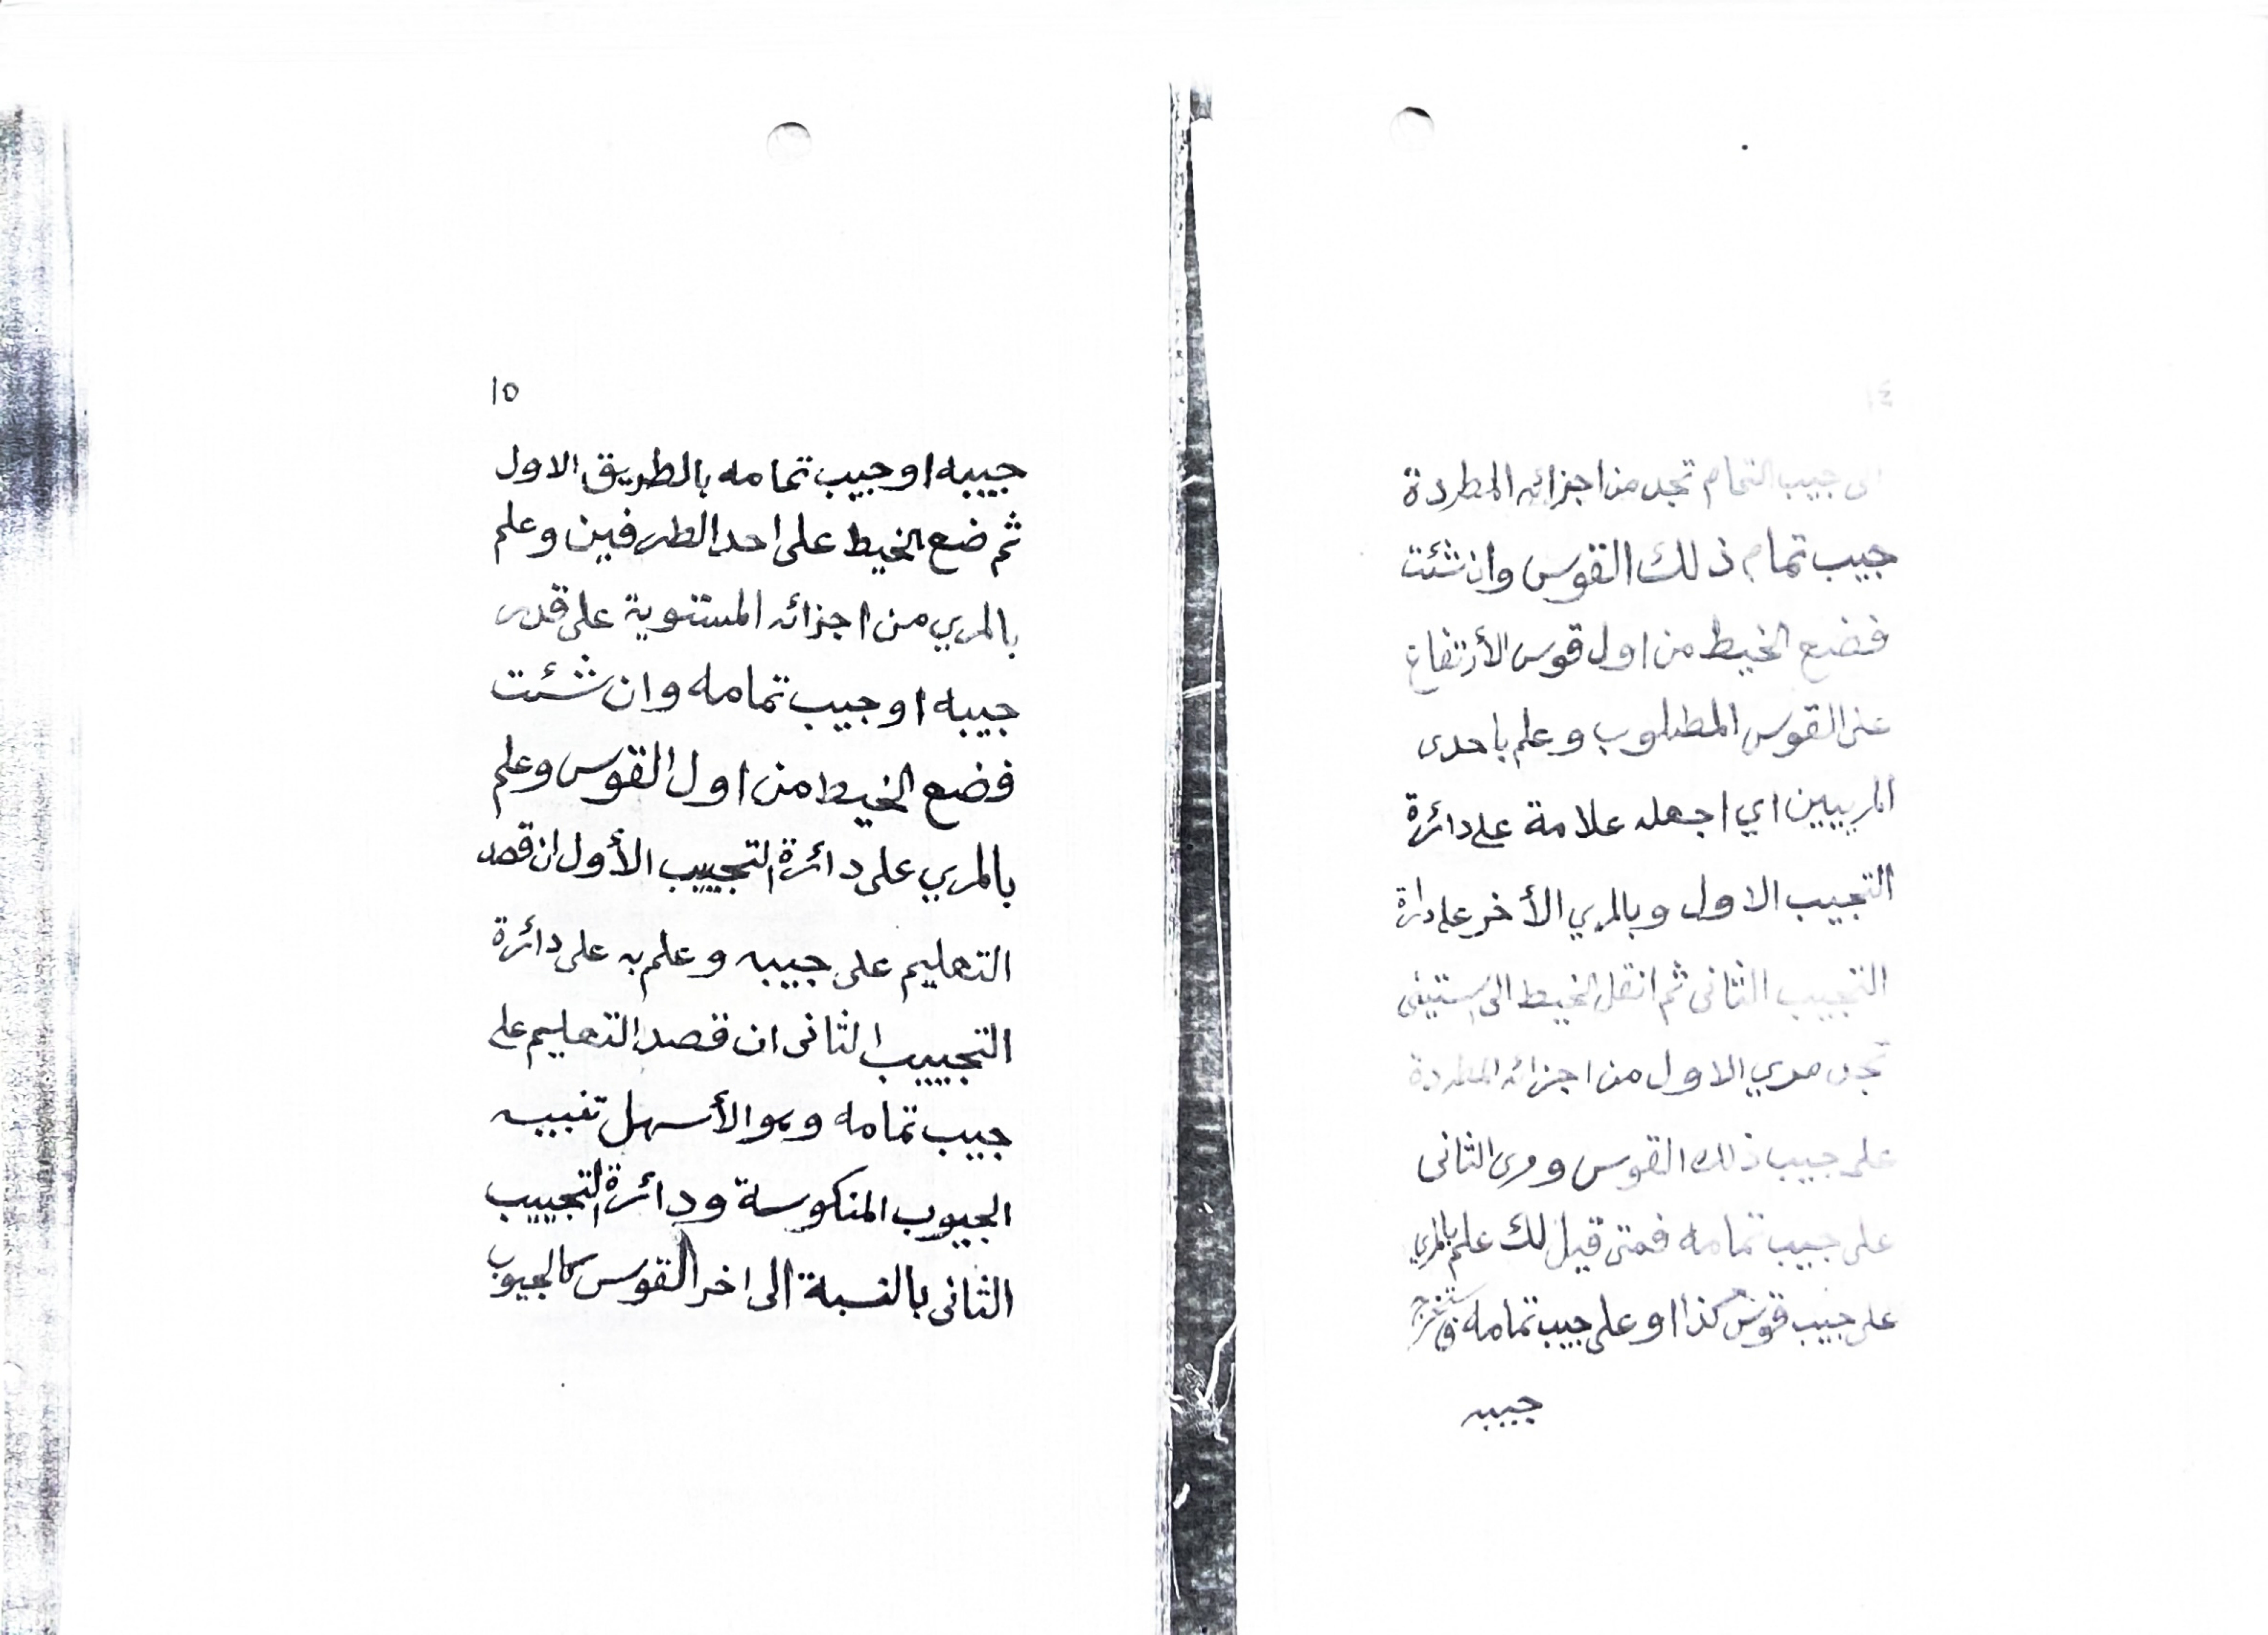 ١٤
الى جيب التمام تجد من اجزائه المطردة
جيب تمام ذلك القوس وان شئت
فضع الخيط من اول قوس الأرتفاع
على القوس المطلوب وعلم باحدى
المرييين اي اجعله علامة على دائرة
التجييب الاول وبالمري الأخر على دائرة
التجييب الثانى ثم انقل الخيط الى الستينى
تجد مري الاول من اجزائه المطردة
على جيب ذلك القوس ومرى الثانى
على جيب تمامه فمتى قيل لك علم بالمري
على جيب قوس كذا او على جيب تمامه فاستخرج
جيبه
١٥
جيبه او جيب تمامه بالطريق الاول
ثم ضع الخيط على احد الطرفين وعلم
بالمري من اجزائه المستوية على قدر
جيبه او جيب تمامه وان شئت
فضع الخيط من اول القوس وعلم
بالمري على دائرة التجييب الأول ان قصد
التعليم على جيبه وعلم به على دائرة
التجييب الثانى ان قصد التعليم على
جيب تمامه وهو الأسهل تنبيه
الجيوب المنكوسة ودائرة التجييب
الثانى بالنسبة الى اخر القوس كالجيوب